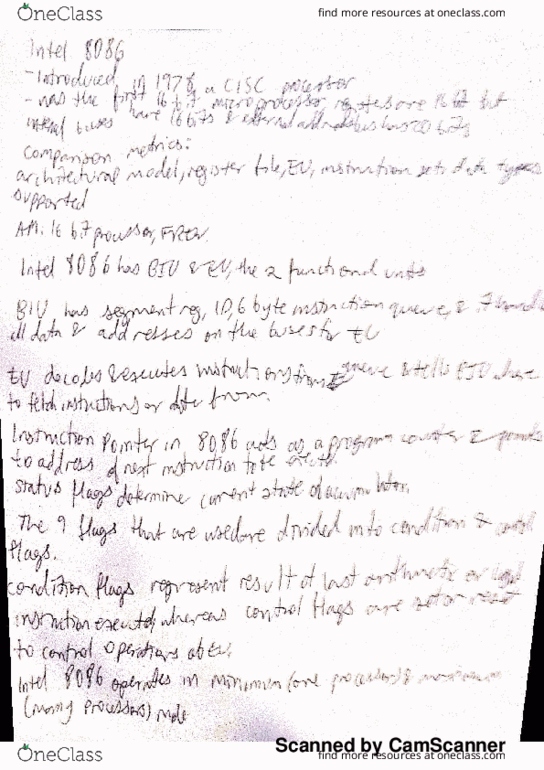 OneClass
find more resources at oneclass.com
Intel 8086
- Introduced in 1978, a CISC processor
- was the first 16 bit microprocessor, registers are 16 bit but
internal buses have 16 bits & external address bus has 20 bits
Comparison metrics:
architectural model, register file, EU, instruction set, data types
supported
16 bit processor,
Intel 8086 has BIU & EU, the 2 functional units
BIU has segment reg, IP, 6 byte instruction queue, & it handles
all data & addresses on the buses for EU
EU decodes & executes instructions from queue & tells BIU where
to fetch instructions or data from.
Instruction Pointer in 8086 acts as a program counter & points
to address of next instruction to be
status flags determine current state of accumulator.
The 9 flags that are used are divided into condition & control
flags.
condition flags represent result of last arithmetic or logical
instruction executed whereas control flags are set or reset
to control operations of
Intel 8086 operates in minimum (one processor) & maximum
(many processors) mode
Scanned by CamScanner
OneClass
find more resources at oneclass.com